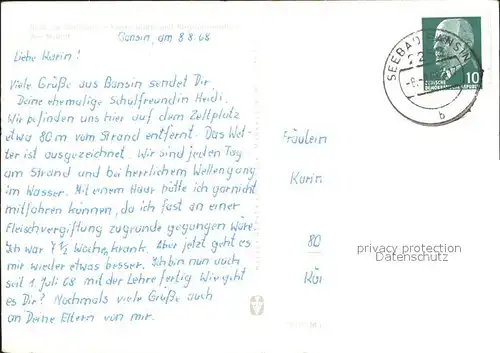 Bansin, am 8.8.68
Liebe Karin!
Viele Grüße aus Bansin sendet Dir
Deine ehemalige Schulfreundin Heidi.
Wir befinden uns hier auf dem Zeltplatz
etwa 80m vom Strand entfernt. Das Wet-
ter ist ausgezeichnet. Wir sind jeden Tag
am Strand und bei herrlichem Wellengang
im Wasser. Mit einem Haar hätte ich garnicht
mitfahren können, da ich fast an einer
Fleischvergiftung zugrunde gegangen wäre.
Ich war 7 1/2 Wochen krank. Aber jetzt geht es
mir wieder etwas besser. Ich bin nun auch
seit 1. Juli 68 mit der Lehre fertig. Wie geht
es Dir? Nochmals viele Grüße auch
an Deine Eltern von mir.
SEEBAD BANSIN
b
10
DEUTSCHE
DEMOKRATISCHE REPUBLIK
Fräulein
Karin
80
privacy protection
Datenschutz